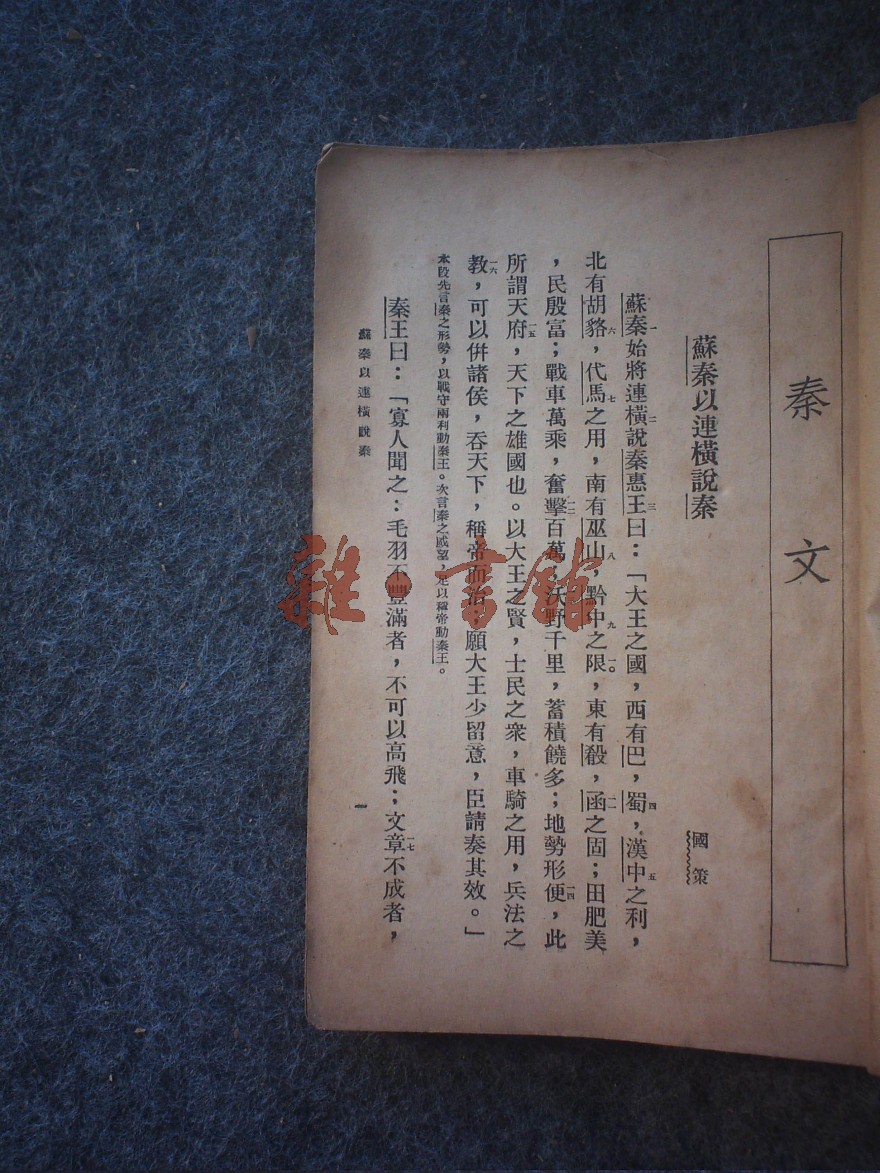 秦文
蘇秦以連橫說秦
國策
蘇秦一始將連橫二說秦惠王三曰：「大王之國，西有巴，蜀四，漢中五之利，
北有胡貉六，代馬七之用，南有巫山八，黔中九之限一〇，東有殽，函一一之固；田肥美
，民殷富；戰車萬乘，奮擊一二百萬，沃野千里，蓄積饒多；地勢形便一四，此
所謂天府一五，天下之雄國也。以大王之賢，士民之衆，車騎之用，兵法之
教一六，可以併諸侯，吞天下，稱帝而治；願大王少留意，臣請奏其效。」
本段先言秦之形勢，以戰守兩利動秦王。次言秦之威望，足以稱帝動秦王。
秦王曰：「寡人聞之：毛羽不豐滿者，不可以高飛；文章一七不成者，
蘇秦以連橫說秦
一
雜·書館